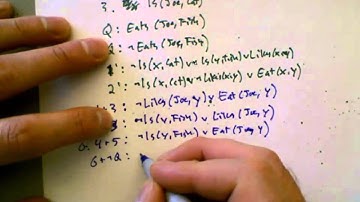 3. Is(Joe, Cat)
Q: Eats(Joe, Fish)
¬Eats(Joe, Fish)
1': ¬Is(x, Cat) ∨ ¬Is(y, Fish) ∨ Likes(x,y)
2': ¬Is(x, Cat) ∨ ¬Likes(x,y) ∨ Eat(x,y)
+3: ¬Likes(Joe, y) ∨ Eat(Joe, y)
3: ¬Is(y, Fish) ∨ Likes(Joe, y)
6. 4+5: ¬Is(y, Fish) ∨ Eat(Joe, y)
6+¬Q: